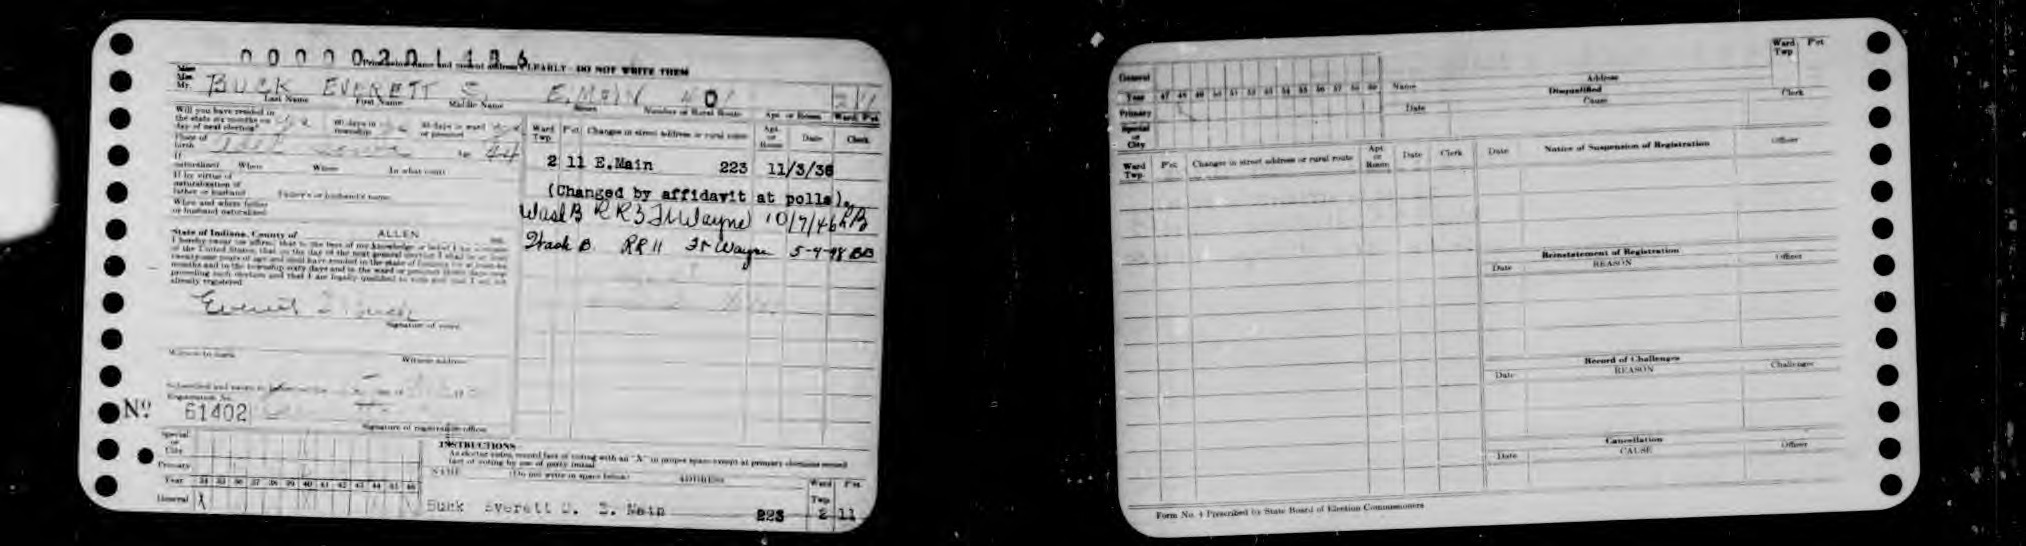 0 0 0 0 0 2 0 1 4 8 6
CLEARLY - DO NOT WRITE THEM
Miss
Mrs.
Mr. BUCK EVERETT S. E. MAIN
Last Name First Name Middle Name Street Number or Rural Route Apt. or Room Ward Pct.
Will you have resided in
the state six months on
day of next election?
60 days in
township
30 days in ward
or precinct
Place of
birth Age 44
If
naturalized When Where In what court
If by virtue of
naturalization of
father or husband Father's or husband's name
When and where father
or husband naturalized
State of Indiana, County of ALLEN ss:
I hereby swear (or affirm) that to the best of my knowledge or belief I am a citizen
of the United States, that on the day of the next general election I shall be at least
twenty-one years of age and shall have resided in the state of Indiana for at least six
months and in the township sixty days and in the ward or precinct thirty days next
preceding such election and that I am legally qualified to vote and that I am not
already registered.
Everett S. Buck
Signature of voter
Witness to mark Witness address
Subscribed and sworn to before me this
Registration No.
Nº 61402
Signature of registration officer
Ward
Twp. Pct. Changes in street address or rural route Apt.
or
Room Date Clerk
2 11 E.Main 223 11/3/36
(Changed by affidavit at polls).
Wash B RR3 Ft Wayne 10/7/46
Wash B RR 11 Ft Wayne 5-4-48 BB
Special
or
City
Primary
Year 34 35 36 37 38 39 40 41 42 43 44 45 46
General X
INSTRUCTIONS
As elector votes, record fact of voting with an "X" in proper space except at primary elections record
fact of voting by use of party initial
NAME (Do not write in space below) ADDRESS Ward
Twp. Pct.
Buck Everett S. E. Main 223 2 11
General
Year 47 48 49 50 51 52 53 54 55 56 57 58 59
Primary
Special
or
City
Name Address Ward
Twp Pct.
Disqualified
Date Cause Clerk
Ward
Twp. Pct. Changes in street address or rural route Apt.
or
Room Date Clerk
Notice of Suspension of Registration
Date Officer
Reinstatement of Registration
Date REASON Officer
Record of Challenges
Date REASON Challenger
Cancellation
Date CAUSE Officer
Form No. 4 Prescribed by State Board of Election Commissioners